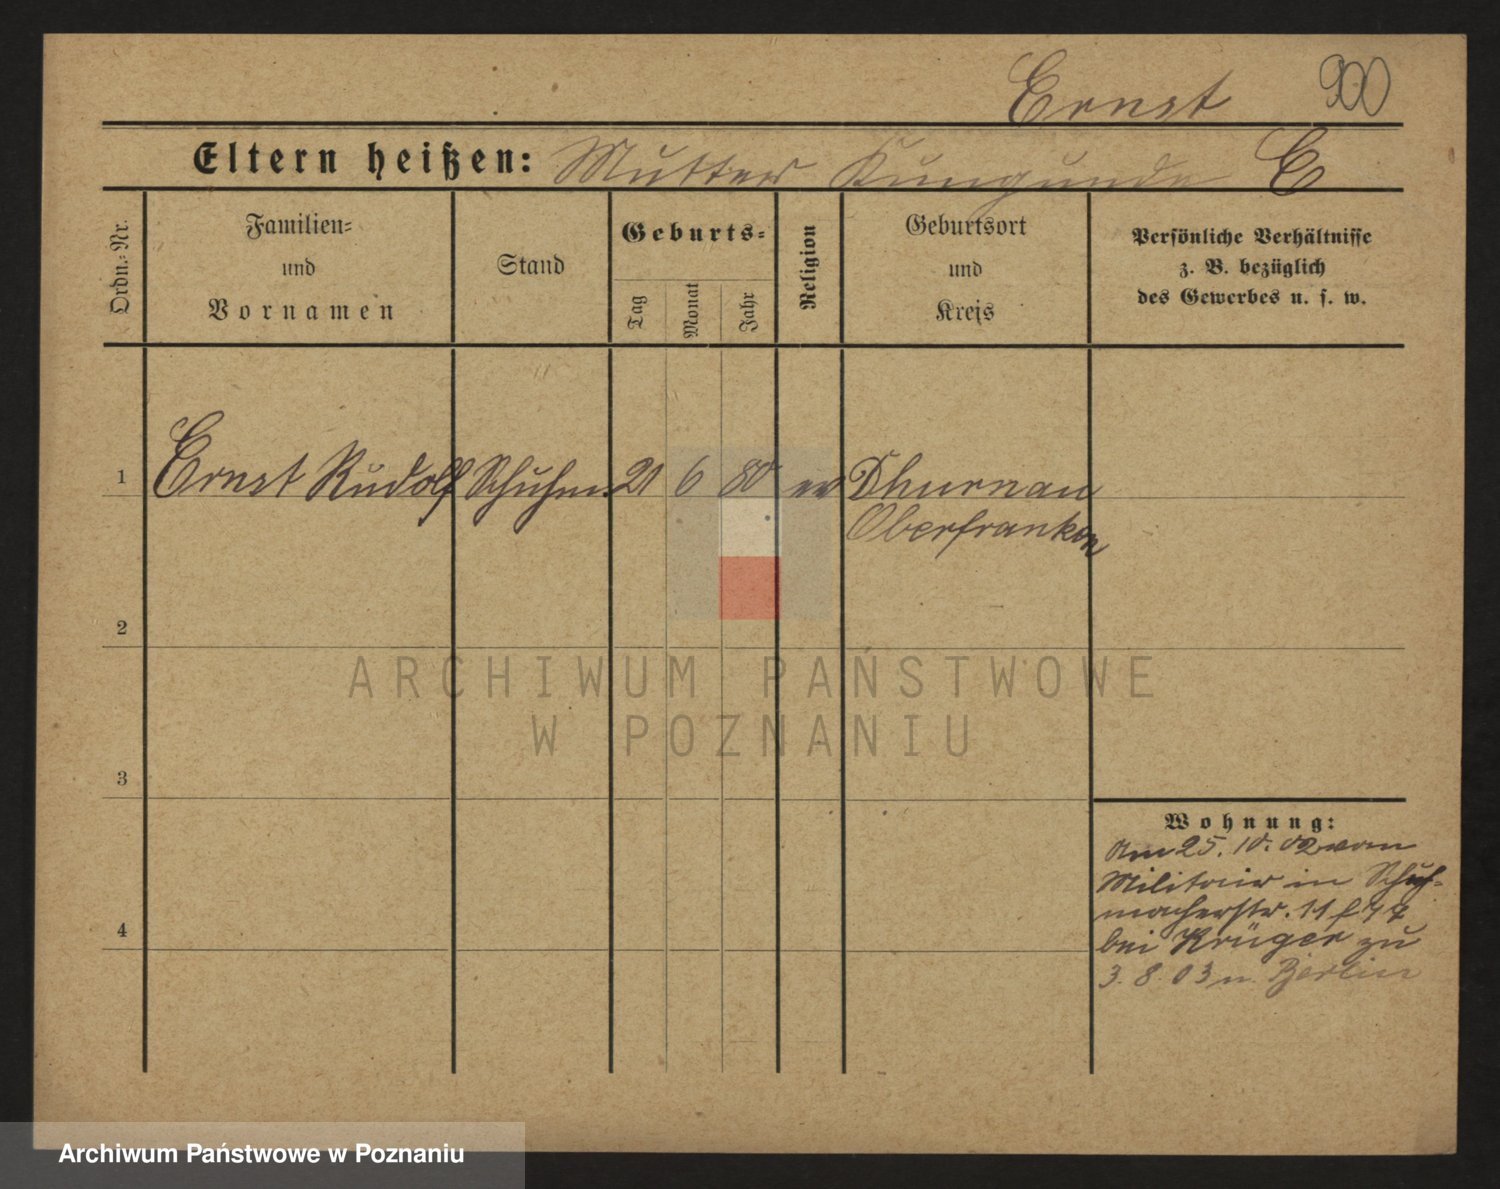 Ernst 900
Eltern heißen: Mutter Kungunde E
Ordn.-Nr.
Familien-
und
Vornamen
Stand
Geburts-
Tag
Monat
Jahr
Religion
Geburtsort
und
Kreis
Persönliche Verhältnisse
z. B. bezüglich
des Gewerbes u. s. w.
1 Ernst Rudolf Schuhm. 21 6 80 ev Thurnau
Oberfranken
2
ARCHIWUM PAŃSTWOWE
W POZNANIU
3
Wohnung:
Am 25. 10. 02 vom
Militair in Schuh-
macherstr. 11
4
bei Krüger zu
3. 8. 03 n. Berlin
Archiwum Państwowe w Poznaniu